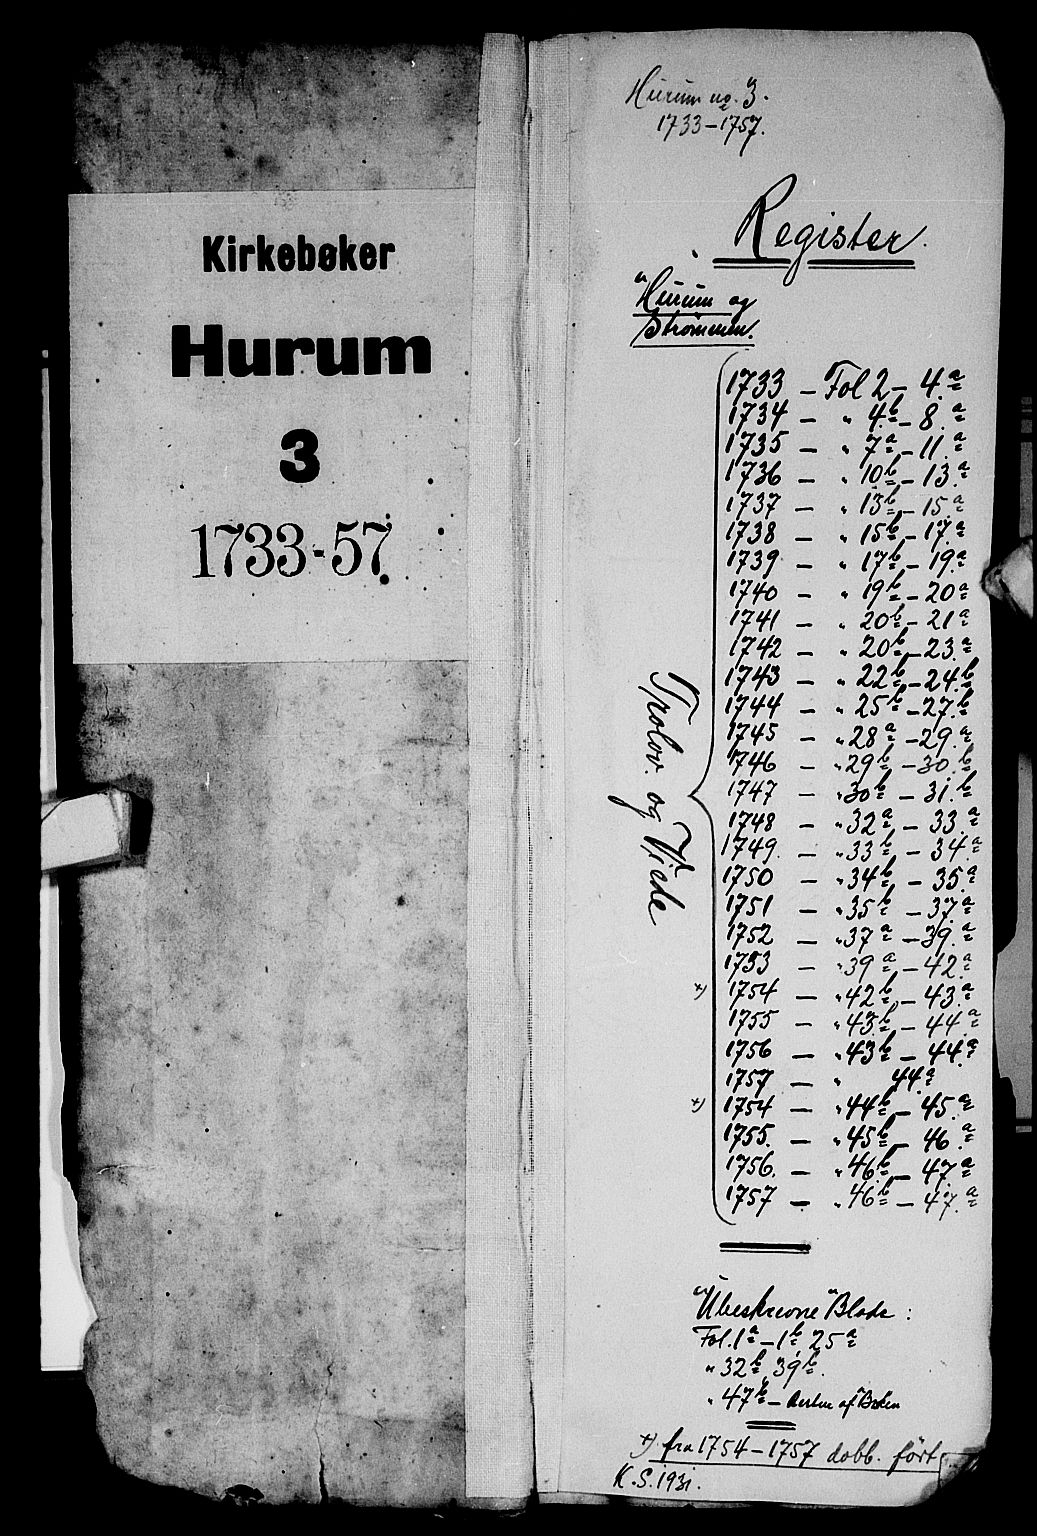 Kirkebøker
Hurum
3
1733-57.
Hurum no. 3.
1733-1757.
Register.
Hurum og
Strømmen.
Trolov. og Viede
1733 - Fol 2 - 4.a
1734 - " 4.b - 8.a
1735 - " 7a - 11.a
1736 - " 10b - 13.a
1737 - " 13b - 15.a
1738 - " 15b - 17.a
1739 - " 17b - 19.a
1740 - " 19b - 20a
1741 - " 20b - 21a
1742 - " 20b - 23.a
1743 - " 22b - 24.b
1744 - " 25b - 27.b
1745 - " 28a - 29.a
1746 - " 29b - 30.b
1747 - " 30b - 31.b
1748 - " 32a - 33.a
1749. - " 33b - 34a
1750 - " 34b - 35.a
1751 - " 35b - 37.a
1752 - " 37a - 39.a
1753 - " 39a - 42.a
+) 1754 - " 42b - 43.a
1755 - " 43b - 44.a
1756 - " 43b - 44.a
1757 - " 44.a
+) 1754 - " 44b - 45.a
1755. - " 45b - 46.a
1756. - " 46b - 47a
1757 - " 46b - 47.a
Ubeskrevne Blade :
Fol. 1a - 1b, 25a
" 32b, 39b.
" 47b - Resten af Boken
+) fra 1754-1757 dobb. ført
K.S. 1931.